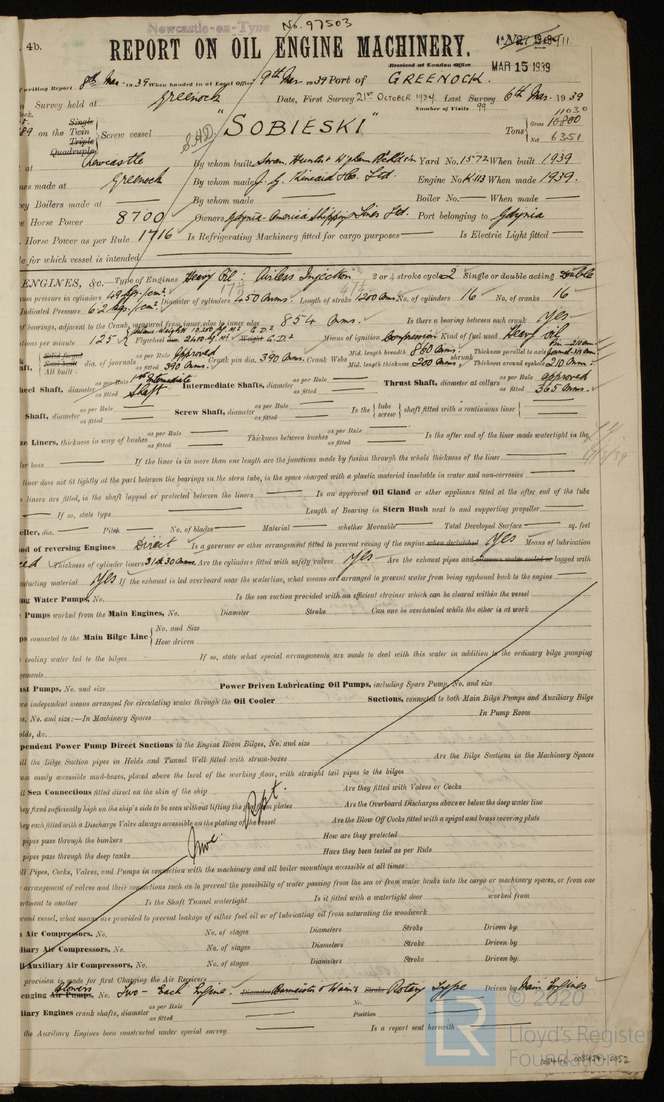 Newcastle-on-Tyne
No. 97503
4b.
REPORT ON OIL ENGINE MACHINERY.
MAR 15 1939
Received at London Office
writing Report 8th Mar. 1939 When handed in at Local Office 9th Mar 1939 Port of GREENOCK.
Survey held at Greenock Date, First Survey 21st OCTOBER 1937. Last Survey 6th Mar. 1939
Number of Visits 99
on the Single Twin Triple Quadruple Screw vessel "SOBIESKI" Tons Gross 10800 11030 Net 6351
at Newcastle By whom built Swan, Hunter & Wigham Richardson Yard No. 1572 When built 1939
made at Greenock By whom made J. G. Kincaid & Co. Ltd. Engine No. K113 When made 1939.
Boilers made at By whom made Boiler No. When made
Horse Power 8700 Owners Gdynia-America Shipping Lines Ltd. Port belonging to Gdynia
Horse Power as per Rule 1716 Is Refrigerating Machinery fitted for cargo purposes Is Electric Light fitted
for which vessel is intended
ENGINES, &c. Type of Engines Heavy Oil: Airless Injection 2 or 4 stroke cycle 2 Single or double acting Double
pressure in cylinders Diameter of cylinders 450 mms. Length of stroke 1200 mms. No. of cylinders 16 No. of cranks 16
Indicated Pressure
of bearings, adjacent to the Crank, measured from inner edge to inner edge 854 mms. Is there a bearing between each crank Yes
per minute 125 Flywheel dia. Weight Means of ignition Compression Kind of fuel used Heavy oil
Solid forged All built dia. of journals as per Rule Approved as fitted 390 mms. Crank pin dia. 390 mms. Crank Webs Mid. length breadth 860 mms. Mid. length thickness 200 mms. shrunk Thickness parallel to axis Thickness around eyehole 210 mms.
Wheel Shaft, diameter as per Rule as fitted Intermediate Shaft Intermediate Shafts, diameter as per Rule as fitted Thrust Shaft, diameter at collars as per Rule approved as fitted 365 mms.
Shaft, diameter as per Rule as fitted Screw Shaft, diameter as per Rule as fitted Is the tube screw shaft fitted with a continuous liner
Liners, thickness in way of bushes as per Rule as fitted Thickness between bushes as per Rule as fitted Is the after end of the liner made watertight in the
boss If the liner is in more than one length are the junctions made by fusion through the whole thickness of the liner
liner does not fit tightly at the part between the bearings in the stern tube, is the space charged with a plastic material insoluble in water and non-corrosive
liners are fitted, is the shaft lapped or protected between the liners Is an approved Oil Gland or other appliance fitted at the after end of the tube
If so, state type Length of Bearing in Stern Bush next to and supporting propeller
dia. Pitch No. of blades Material whether Moveable Total Developed Surface sq. feet
of reversing Engines Direct Is a governor or other arrangement fitted to prevent racing of the engine when declutched Yes Means of lubrication
Thickness of cylinder liners Are the cylinders fitted with safety valves Yes Are the exhaust pipes and silencers water cooled or lagged with
conducting material Yes If the exhaust is led overboard near the waterline, what means are arranged to prevent water from being syphoned back to the engine
Water Pumps, No. Is the sea suction provided with an efficient strainer which can be cleared within the vessel
Pumps worked from the Main Engines, No. Diameter Stroke Can one be overhauled while the other is at work
connected to the Main Bilge Line No. and Size How driven
cooling water led to the bilges If so, state what special arrangements are made to deal with this water in addition to the ordinary bilge pumping
Pumps, No. and size Power Driven Lubricating Oil Pumps, including Spare Pump, No. and size
independent means arranged for circulating water through the Oil Cooler Suctions, connected to both Main Bilge Pumps and Auxiliary Bilge
No. and size:—In Machinery Spaces In Pump Room
Power Pump Direct Suctions to the Engine Room Bilges, No. and size
the Bilge Suction pipes in Holds and Tunnel Well fitted with strum-boxes Are the Bilge Suctions in the Machinery Spaces
easily accessible mud-boxes, placed above the level of the working floor, with straight tail pipes to the bilges
Sea Connections fitted direct on the skin of the ship Are they fitted with Valves or Cocks
fixed sufficiently high on the ship's side to be seen without lifting the platform plates Are the Overboard Discharges above or below the deep water line
each fitted with a Discharge Valve always accessible on the plating of the vessel Are the Blow Off Cocks fitted with a spigot and brass covering plate
pipes pass through the bunkers How are they protected
pipes pass through the deep tanks Have they been tested as per Rule
Pipes, Cocks, Valves, and Pumps in connection with the machinery and all boiler mountings accessible at all times
arrangement of valves and their connections such as to prevent the possibility of water passing from the sea or from water tanks into the cargo or machinery spaces, or from one
to another Is the Shaft Tunnel watertight Is it fitted with a watertight door worked from
wood vessel, what means are provided to prevent leakage of either fuel oil or of lubricating oil from saturating the woodwork
Air Compressors, No. No. of stages Diameters Stroke Driven by.
Auxiliary Air Compressors, No. No. of stages Diameters Stroke Driven by.
Auxiliary Air Compressors, No. No. of stages Diameters Stroke Driven by.
provision is made for first Charging the Air Receivers
Blowers Air Pumps, No. Two - Each Engine. Diameter Burmeister & Wain's Stroke Rotary Type Driven by Main Engines
Engines crank shafts, diameter as per Rule as fitted No. Position
the Auxiliary Engines been constructed under special survey Is a report sent herewith
LR
© 2020
Lloyd's Register
Foundation